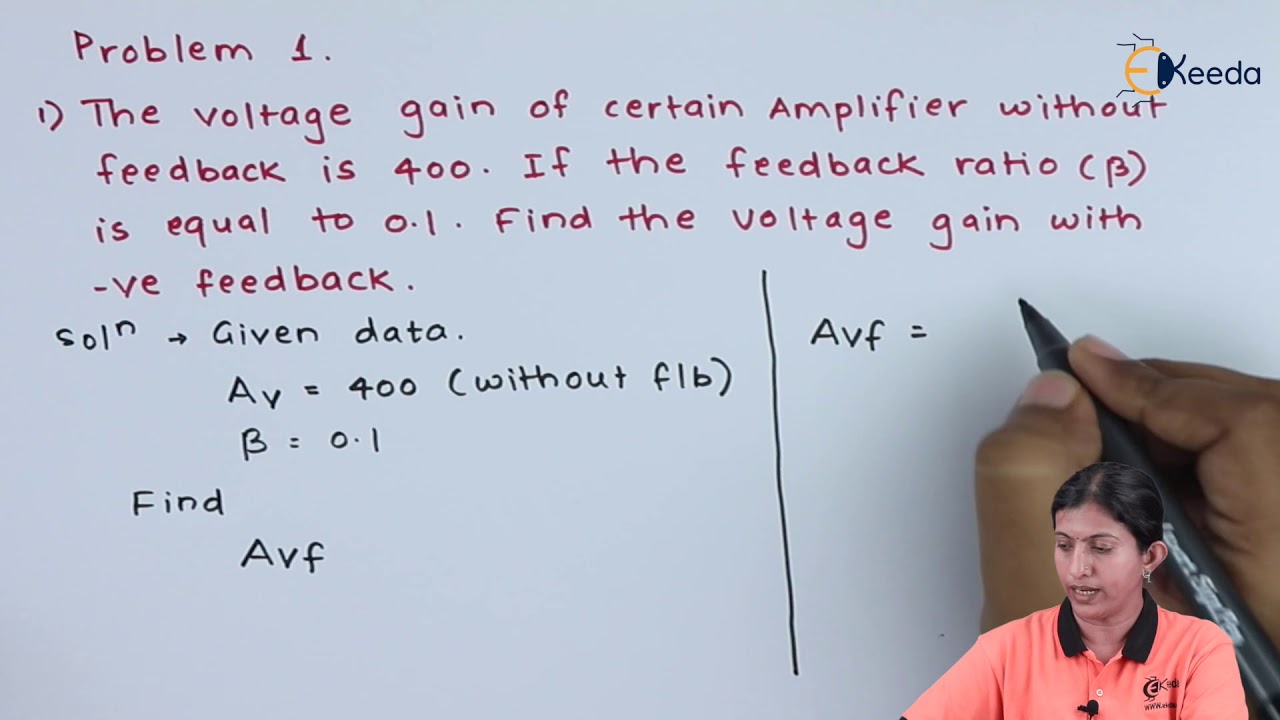 Problem 1.
EKeeda
1) The voltage gain of certain Amplifier without
feedback is 400. If the feedback ratio (β)
is equal to 0.1. Find the voltage gain with
-ve feedback.
Solⁿ → Given data.
Av = 400 (without f/b)
β = 0.1
Find
Avf
Avf =
EKeeda